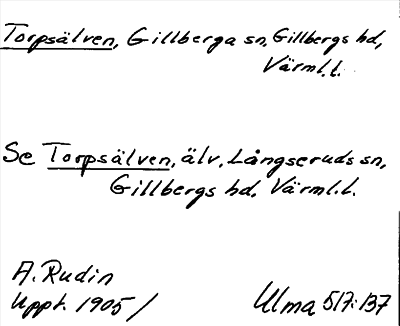 Torpsälven, Gillberga sn, Gillbergs hd,
Värml.l.
Se Torpsälven, älv, Långseruds sn,
Gillbergs hd, Värml.l.
A. Rudin
Uppt. 1905 /
Ulma 517:137